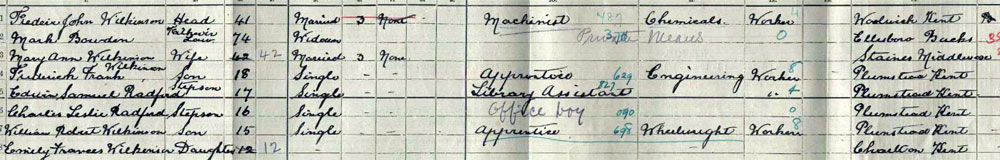 1 Frederic John Wilkinson Head 41 Married 3 None Machinist 487 Chemicals Worker 4 Woolwich Kent
2 Mark Bowden Father in Law 74 Widower Private Means 0 Ellsboro Bucks
3 Mary Ann Wilkinson Wife 42 42 Married 3 None Staines Middlesex
4 Frederick Frank Wilkinson Son 18 Single - - Apprentice 629 Engineering Worker 8 Plumstead Kent
5 Edwin Samuel Radford Stepson 17 Single - - Library Assistant 827 " 4 Plumstead Kent
6 Charles Leslie Radford Stepson 16 Single - - Office boy 090 0 Plumstead Kent
7 William Robert Wilkinson Son 15 Single - - Apprentice 698 Wheelwright Worker 8 Plumstead Kent
8 Emily Frances Wilkinson Daughter 12 12 - - - Charlton Kent